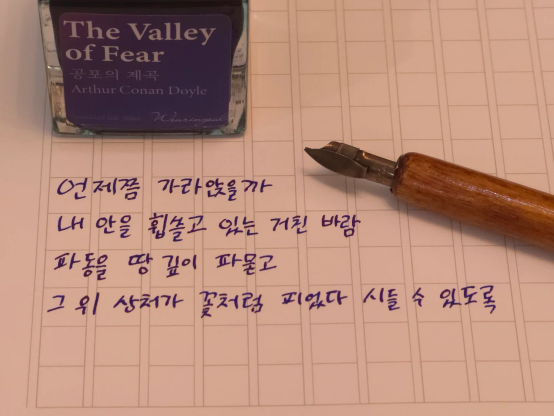 The Valley
of Fear
공포의 계곡
Arthur Conan Doyle
Wearingeul
언제쯤 가라앉을까
내 안을 휩쓸고 있는 거친 바람
파동을 땅 깊이 파묻고
그 위 상처가 꽃처럼 피었다 시들 수 있도록